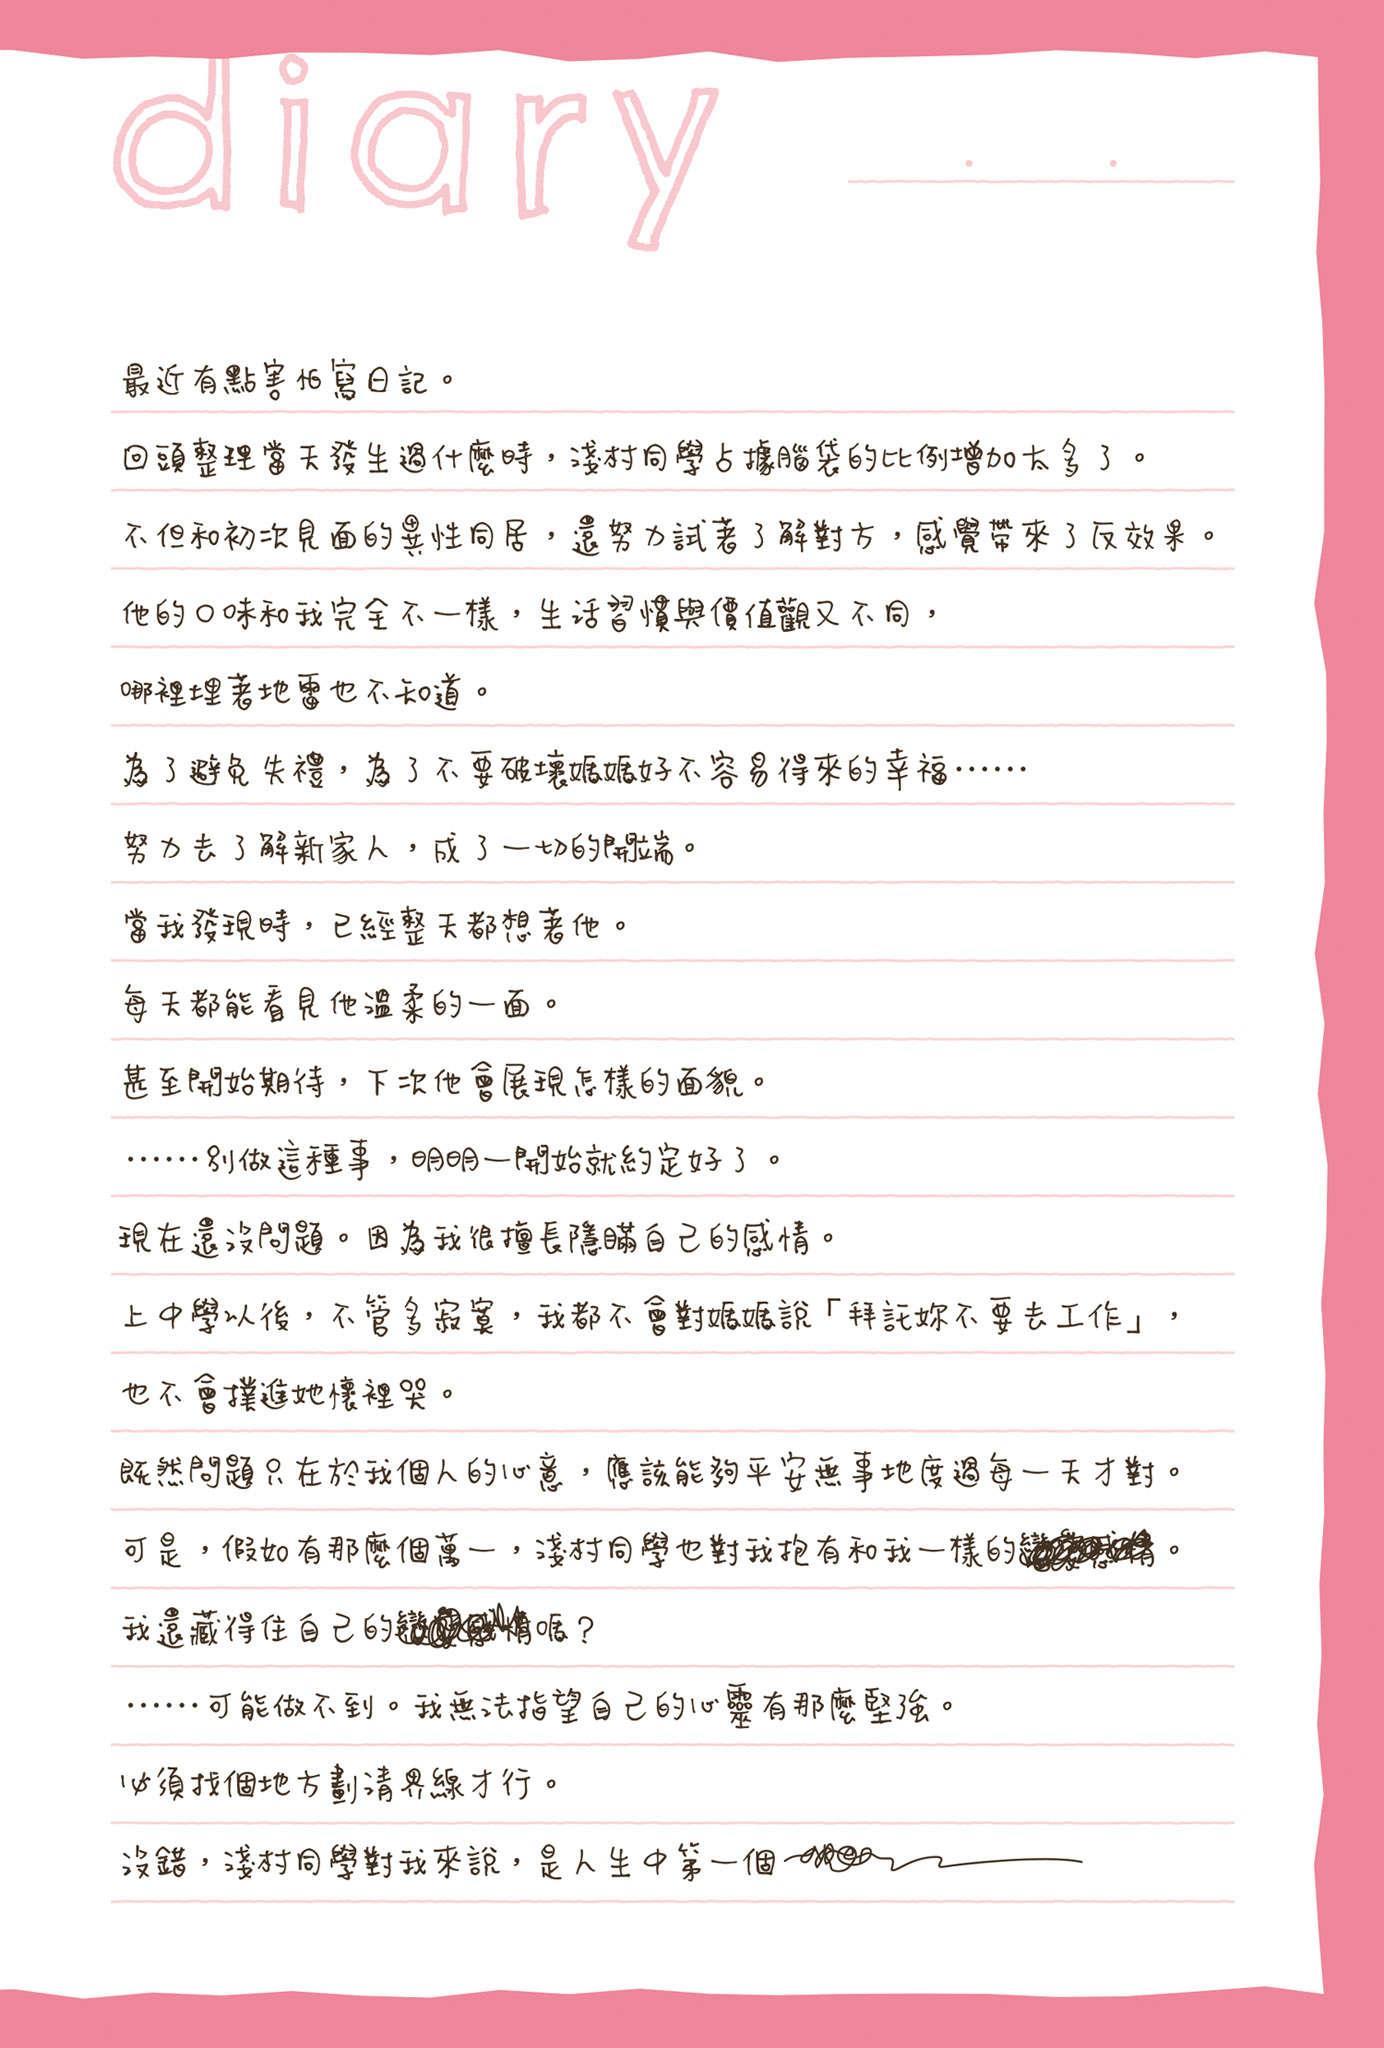 diary
最近有點害怕寫日記。
回頭整理當天發生過什麼時，淺村同學占據腦袋的比例增加太多了。
不但和初次見面的異性同居，還努力試著了解對方，感覺帶來了反效果。
他的口味和我完全不一樣，生活習慣與價值觀又不同，
哪裡埋著地雷也不知道。
為了避免失禮，為了不要破壞媽媽好不容易得來的幸福⋯⋯
努力去了解新家人，成了一切的開端。
當我發現時，已經整天都想著他。
每天都能看見他溫柔的一面。
甚至開始期待，下次他會展現怎樣的面貌。
⋯⋯別做這種事，明明一開始就約定好了。
現在還沒問題。因為我很擅長隱瞞自己的感情。
上中學以後，不管多寂寞，我都不會對媽媽說「拜託妳不要去工作」，
也不會撲進她懷裡哭。
既然問題只在於我個人的心意，應該能夠平安無事地度過每一天才對。
可是，假如有那麼個萬一，淺村同學也對我抱有和我一樣的。
我還藏得住自己的嗎？
⋯⋯可能做不到。我無法指望自己的心靈有那麼堅強。
必須找個地方劃清界線才行。
沒錯，淺村同學對我來說，是人生中第一個